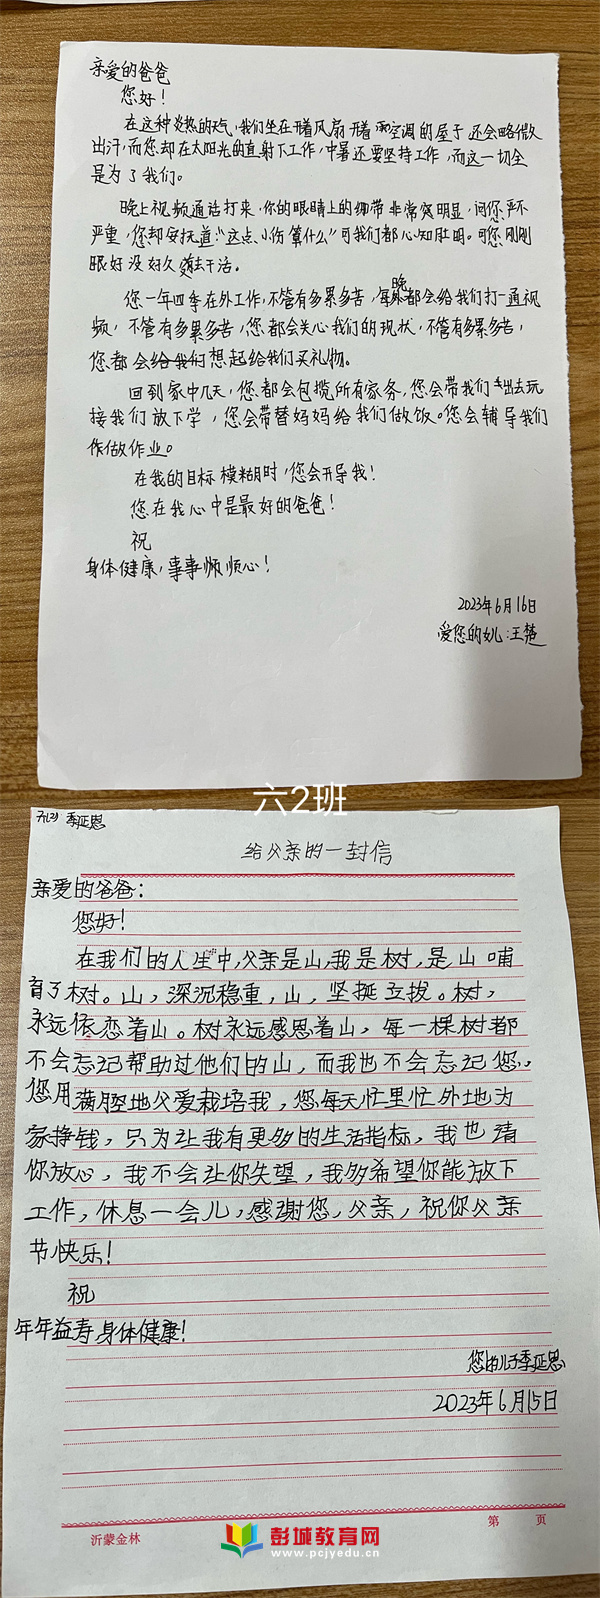 亲爱的爸爸
您好！
在这种炎热的天气，我们坐在开着风扇开着空调的屋子还会略微
出汗，而您却在太阳光的直射下工作，中暑还要坚持工作，而这一切全
是为了我们。
晚上视频通话打来，你的眼睛上的绷带非常突明显，问您严不
严重，您却安抚道：“这点小伤算什么”可我们都心知肚明。可您刚刚
眼好没好久就去干活。
您一年四季在外工作，不管有多累多苦，每晚都会给我们打一通视
频，不管有多累多苦，您都会关心我们的现状，不管有多累多苦，
您都会想起给我们买礼物。
回到家中几天，您都会包揽所有家务，您会带我们出去玩
接我们放下学，您会带替妈妈给我们做饭。您会辅导我们
作做作业。
在我的目标模糊时，您会开导我！
您在我心中是最好的爸爸！
祝
身体健康，事事顺心！
2023年6月16日
爱您的女儿：王楚
六2班
六(2) 季延恩
给父亲的一封信
亲爱的爸爸：
您好！
在我们的人生中，父亲是山，我是树，是山哺
育了树。山，深沉稳重，山，坚挺立拔。树，
永远依恋着山。树永远感恩着山，每一棵树都
不会忘记帮助过他们的山，而我也不会忘记您，
您用满腔地父爱栽培我，您每天忙里忙外地为
家挣钱，只为让我有更多的生活指标，我也请
你放心，我不会让你失望，我多希望你能放下
工作，休息一会儿，感谢您，父亲，祝你父亲
节快乐！
祝
年年益寿身体健康！
您的儿子季延恩
2023年6月15日
沂蒙金林
第 页
彭城教育网
www.pcjyedu.cn